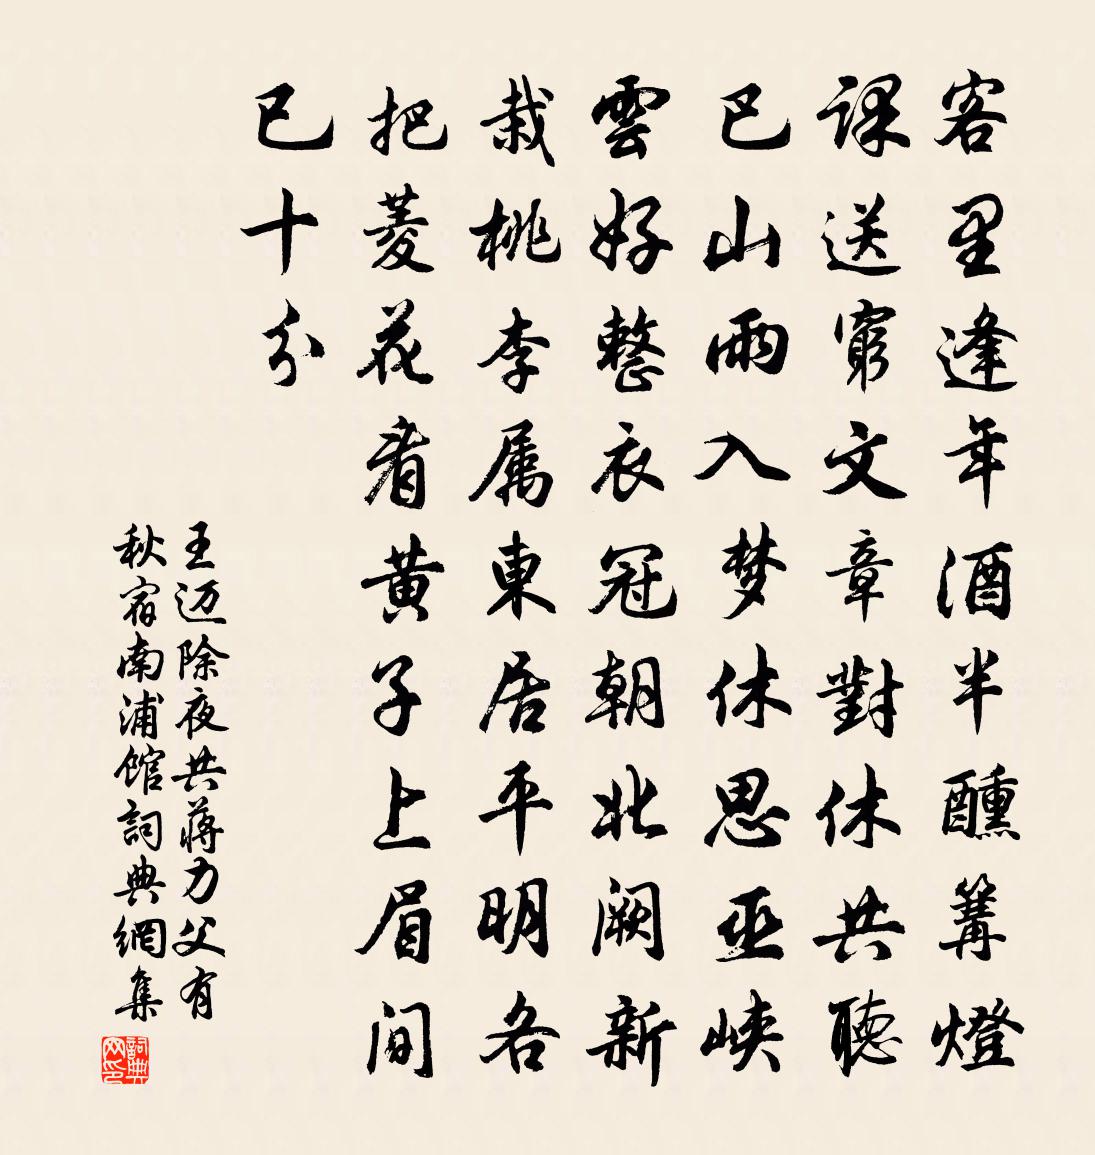 客里逢年酒半醺篝燈
課送窮文章對休共聽
巴山雨入梦休思巫峽
雲好整衣冠朝北闕新
栽桃李属東君平明各
把菱花看黃子上眉間
已十分
王迈除夜共蔣力父有
秋宿南浦館詞典網集
詞典网印